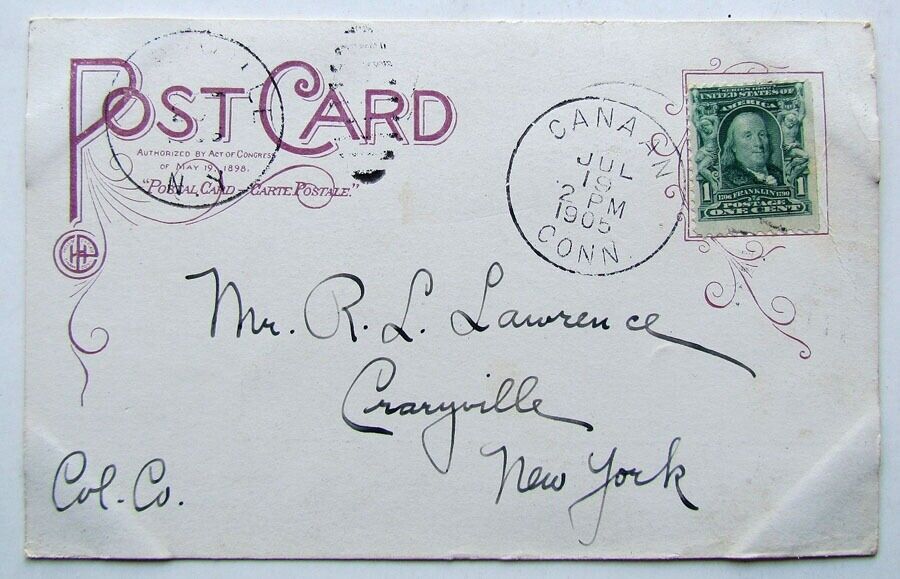 POST CARD
AUTHORIZED BY ACT OF CONGRESS
OF MAY 19, 1898.
"POSTAL CARD — CARTE POSTALE."
N.Y.
CANAAN
JUL
19
2 PM
1905
CONN.
SERIES 1902
UNITED STATES OF
AMERICA
1 1
1706 FRANKLIN 1790
POSTAGE
ONE CENT
Mr. R. L. Lawrence
Craryville
New York
Col. Co.